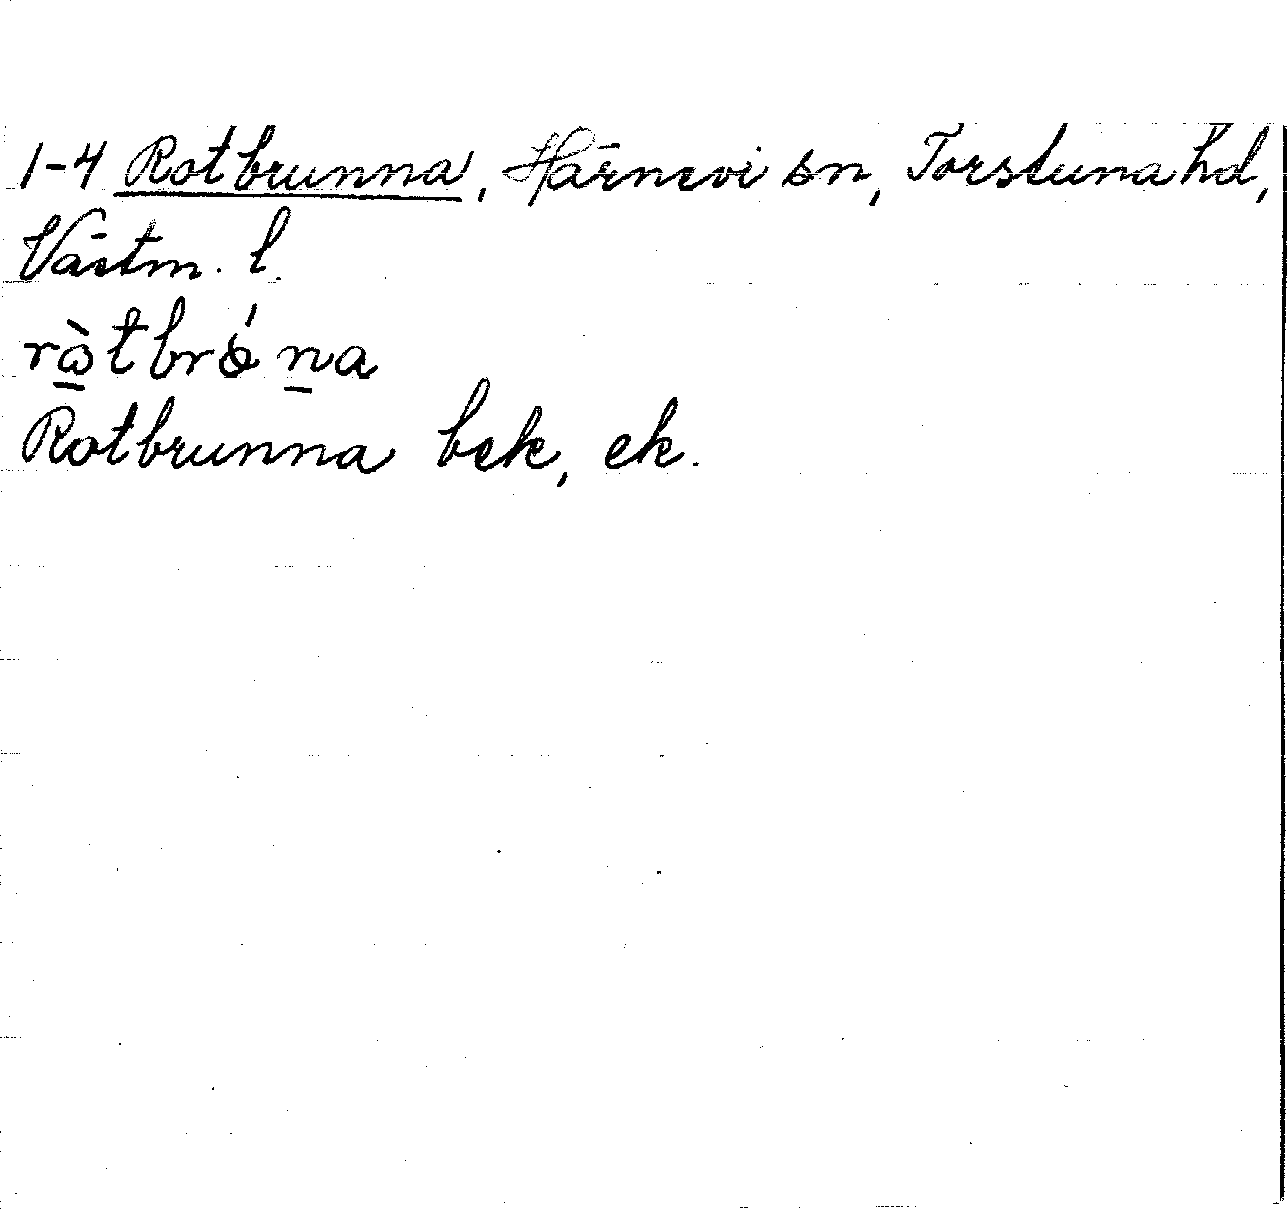 1-4 Rotbrunna, Härnevi sn, Torstuna hd,
Västm. l.
rὼ̠tbrǿn̠a
Rotbrunna bek, ek.